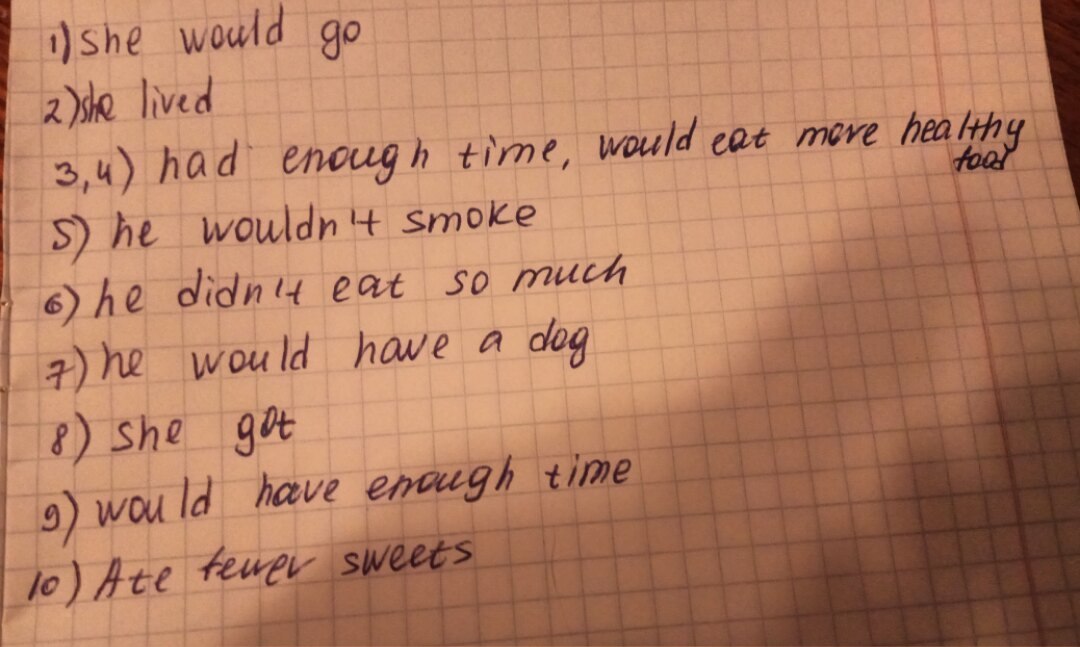 1) she would go
2) she lived
3,4) had enough time, would eat more healthy
food
5) he wouldn't smoke
6) he didn't eat so much
7) he would have a dog
8) she got
9) would have enough time
10) Ate fewer sweets